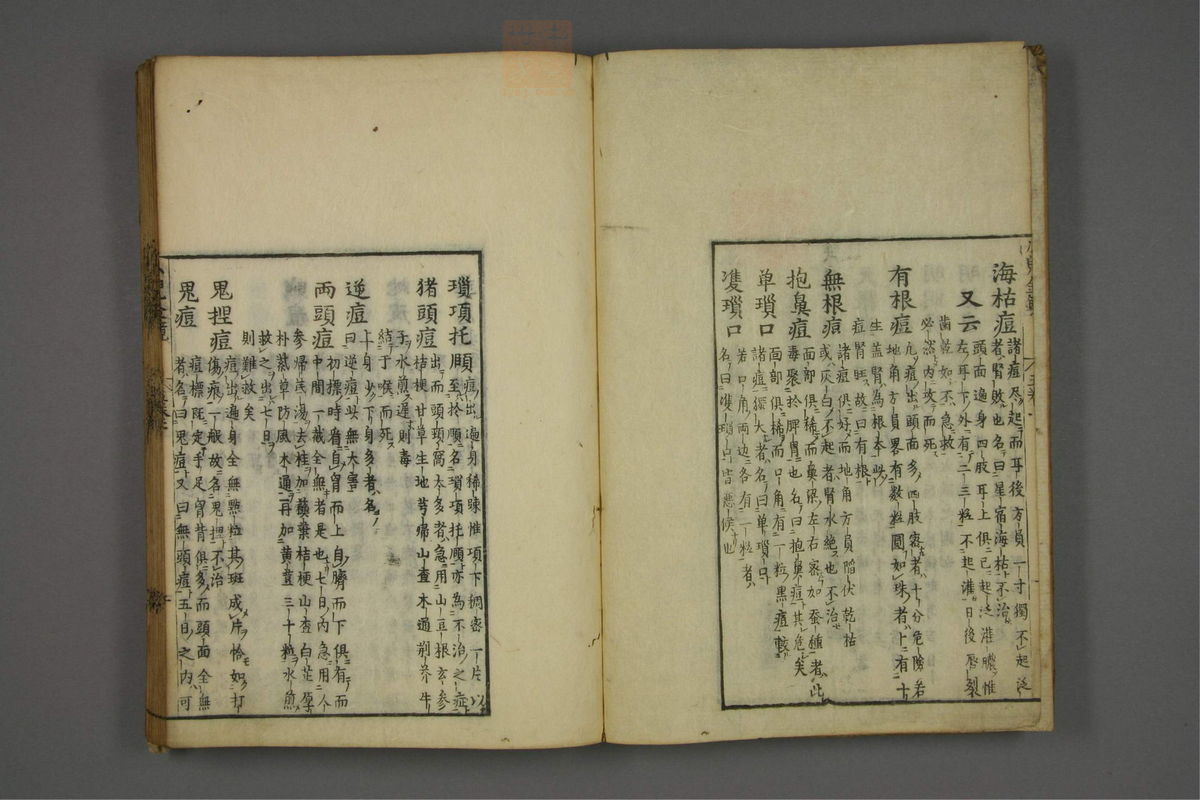 海枯痘 諸痘尽起而耳後方員一寸獨不起泛
者腎敗也名曰星宿海枯不治
又云 頭面遍身四肢耳上俱已起泛灌膿惟
左耳下外有二三粒不起灌日後唇裂
歯乾如不急救
必然内攻而死
有根痘 凡痘出頭面多四肢密者十分危険若
地角方員畧有数粒圓如珠者十有十
生盖腎為根本此
痘腎旺故曰有根
無根痘 諸痘俱好而地角方員陥伏乾枯
或灰白不起者腎水絶也不治
抱鼻痘 面部俱稀而鼻梁左右密如蚕種者此
毒聚於脾胃也名曰抱鼻痘其危矣
单瑣口 面部俱稀而口角有一粒黒痘較
諸痘獨大者名曰单瑣口
隻瑣口 若口角两边各有一粒者
名曰隻瑣口皆悪候也
瑣項托頤 痘出遍身稀踈惟項下稠密一片以
至於頤名瑣項托頤亦為不治之症
猪頭痘 出而頭項窩太多者急用山豆根玄参
桔梗甘草生地芎帰山查木通荊芥牛
子水煎遅則毒
結于喉而死
逆痘 上身少下身多者名
曰逆痘此無大害
両頭痘 初標時看自胷而上自臍而下俱有而
中間一截全無者是也七日内急用人
参帰芪湯去桂加蘗桔梗山查白芷厚
朴甚草防風木通再加黄芪三十粒水煎
救之出七日
則難救矣
鬼捏痘 痘出遍身全無點粒其斑成片恰如打
傷痕一般故名鬼捏不治
鬼痘 痘標既定手足胷背俱多而頭面全無
者名曰鬼痘又曰無頭痘五日之内可